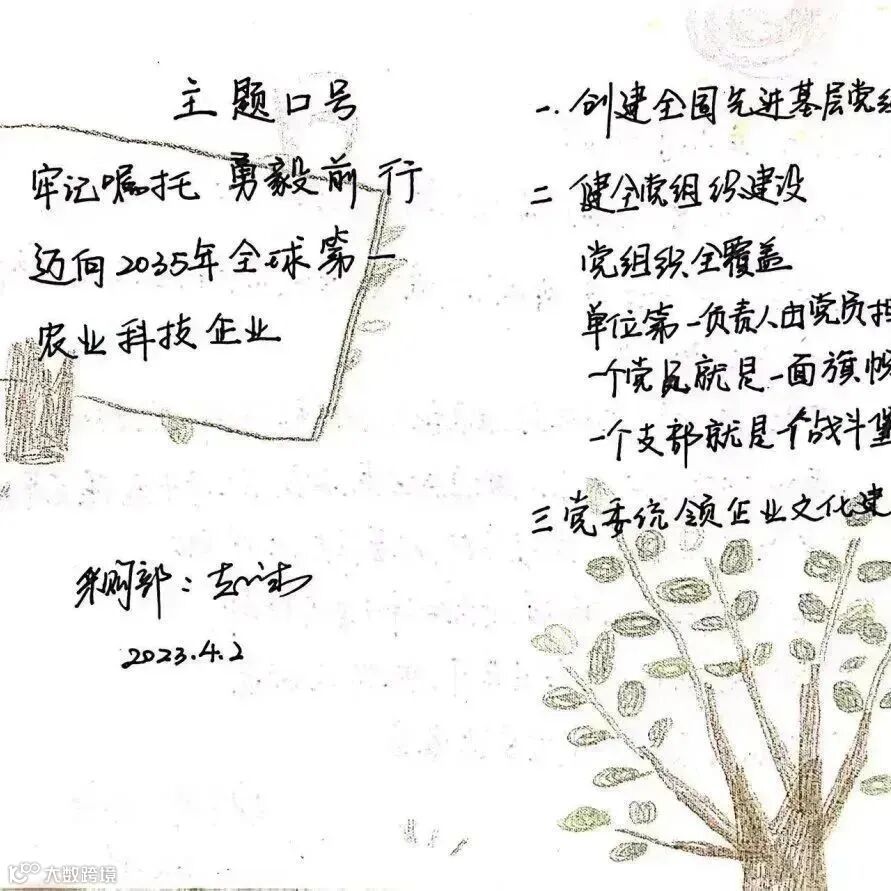 主题口号
牢记嘱托 勇毅前行
迈向2035年全球第一
农业科技企业
采购部：
2023.4.2
一.创建全国先进基层党
二 健全党组织建设
党组织全覆盖
单位第一负责人由党员
一个党员就是一面旗帜
一个支部就是个战斗堡
三党委统领企业文化建
大数跨境